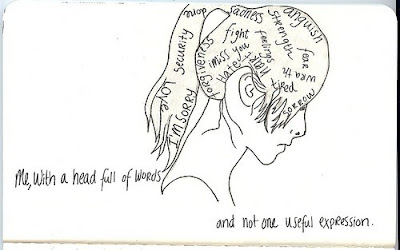 security
LOVE
I'M SORRY
forgiveness
sadness
strength
anguish
fight
feelings
i miss you
fear
wrath
tired
SORROW
Me, with a head full of words
and not one useful expression.